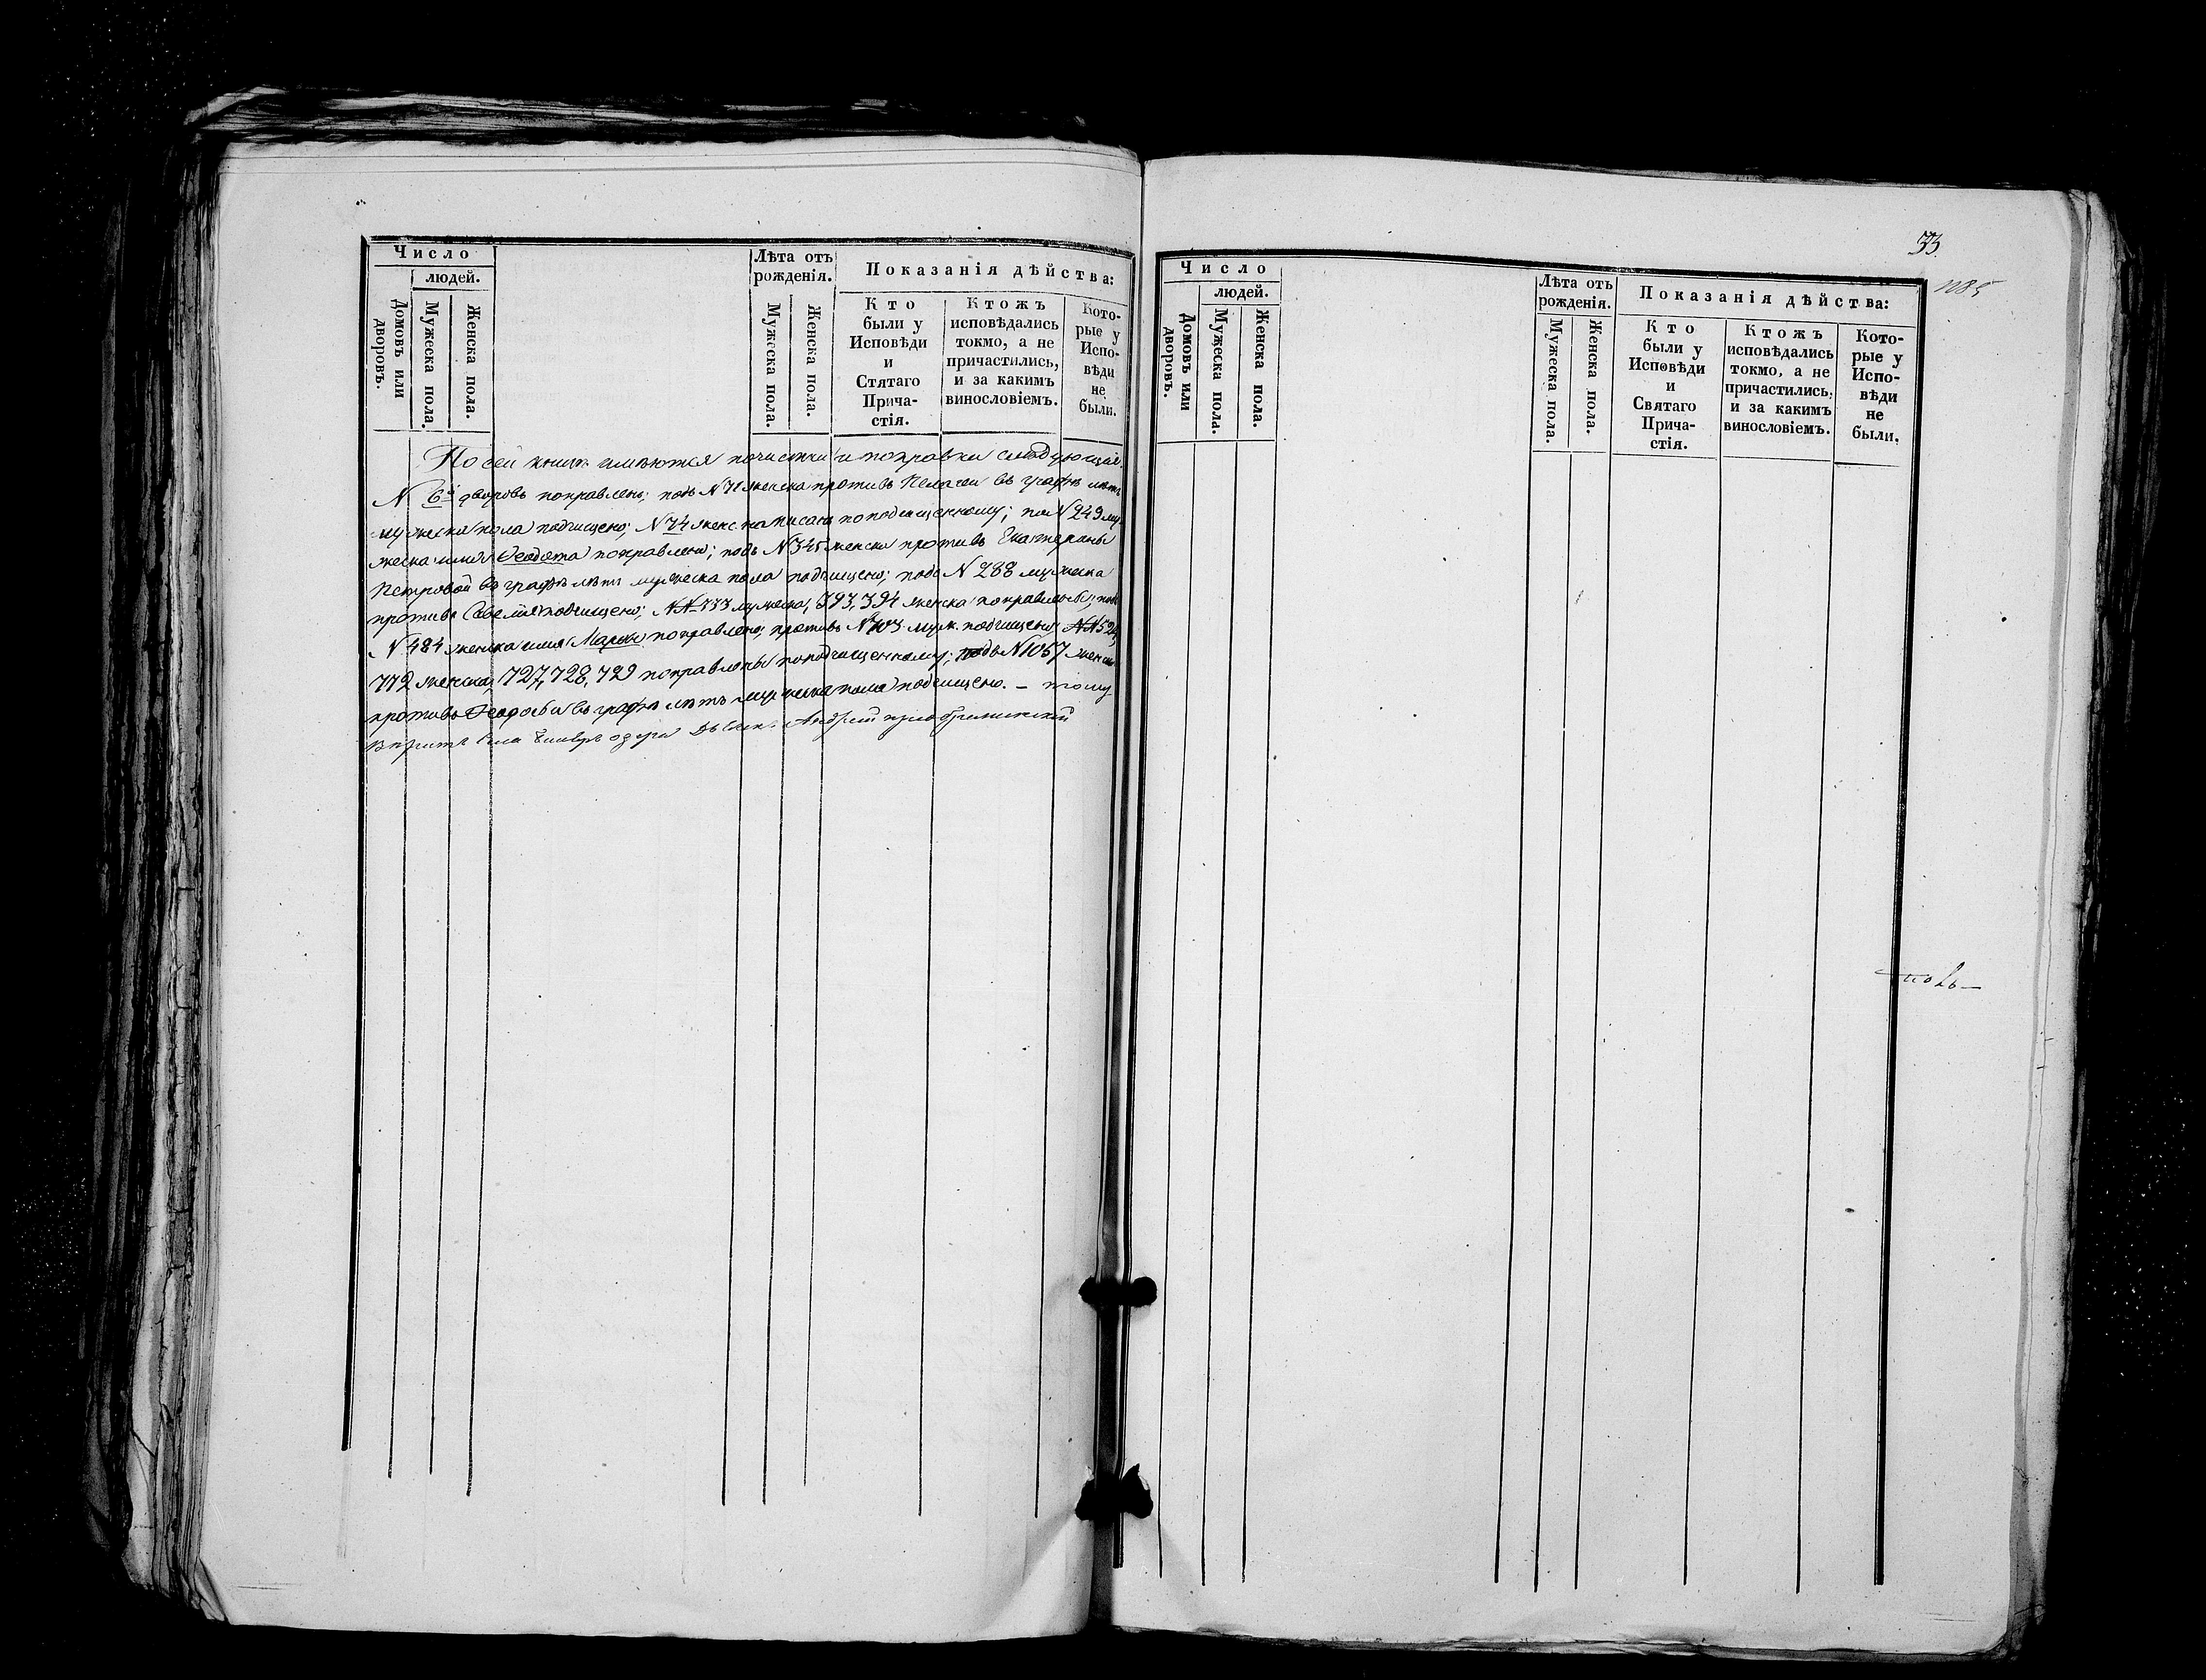 Число
людей.
Домовъ или дворовъ.
Мужеска пола.
Женска пола.
Лѣта отъ рожденія.
Мужеска пола.
Женска пола.
Показанія дѣйства:
Кто
были у
Исповѣди
и
Стятаго
Прича-
стія.
Ктожъ
исповѣдались
токмо, а не
причастились,
и за какимъ
винословіемъ.
Кото-
рые у
Испо-
вѣди
не
были.
По сей книгѣ имѣются почистки и поправки слѣдующія.
N 6й дворовъ поправлено; подъ N 71 женска противъ Пелагеи въ графѣ лѣтъ
мужеска пола подчищено; N 74 женс. написанъ по подчищенному; N 249 му-
жеска имя Ѳеодота поправлено; подъ N 345 женска противъ Екатерины
Петровой въ графѣ лѣтъ мужеска пола подчищено; подъ N 288 мужеска
противъ подчищено; NN 333 мужеска, 393, 394 женска поправлены; подъ
N 484 женска имя Марѳы поправлено; противъ N 703 муж. подчищено;
772 женска, 727, 728, 729 поправлены по подчищенному; подъ N 1067 женска
противъ Ѳеодосьи въ графѣ лѣтъ мужеска пола подчищено. –
села озера Андрей
33.
1085
Число
людей.
Домовъ или дворовъ.
Мужеска пола.
Женска пола.
Лѣта отъ рожденія.
Мужеска пола.
Женска пола.
Показанія дѣйства:
Кто
были у
Исповѣди
и
Святаго
Прича-
стія.
Ктожъ
исповѣдались
токмо, а не
причастились,
и за какимъ
винословіемъ.
Кото-
рые у
Испо-
вѣди
не
были.